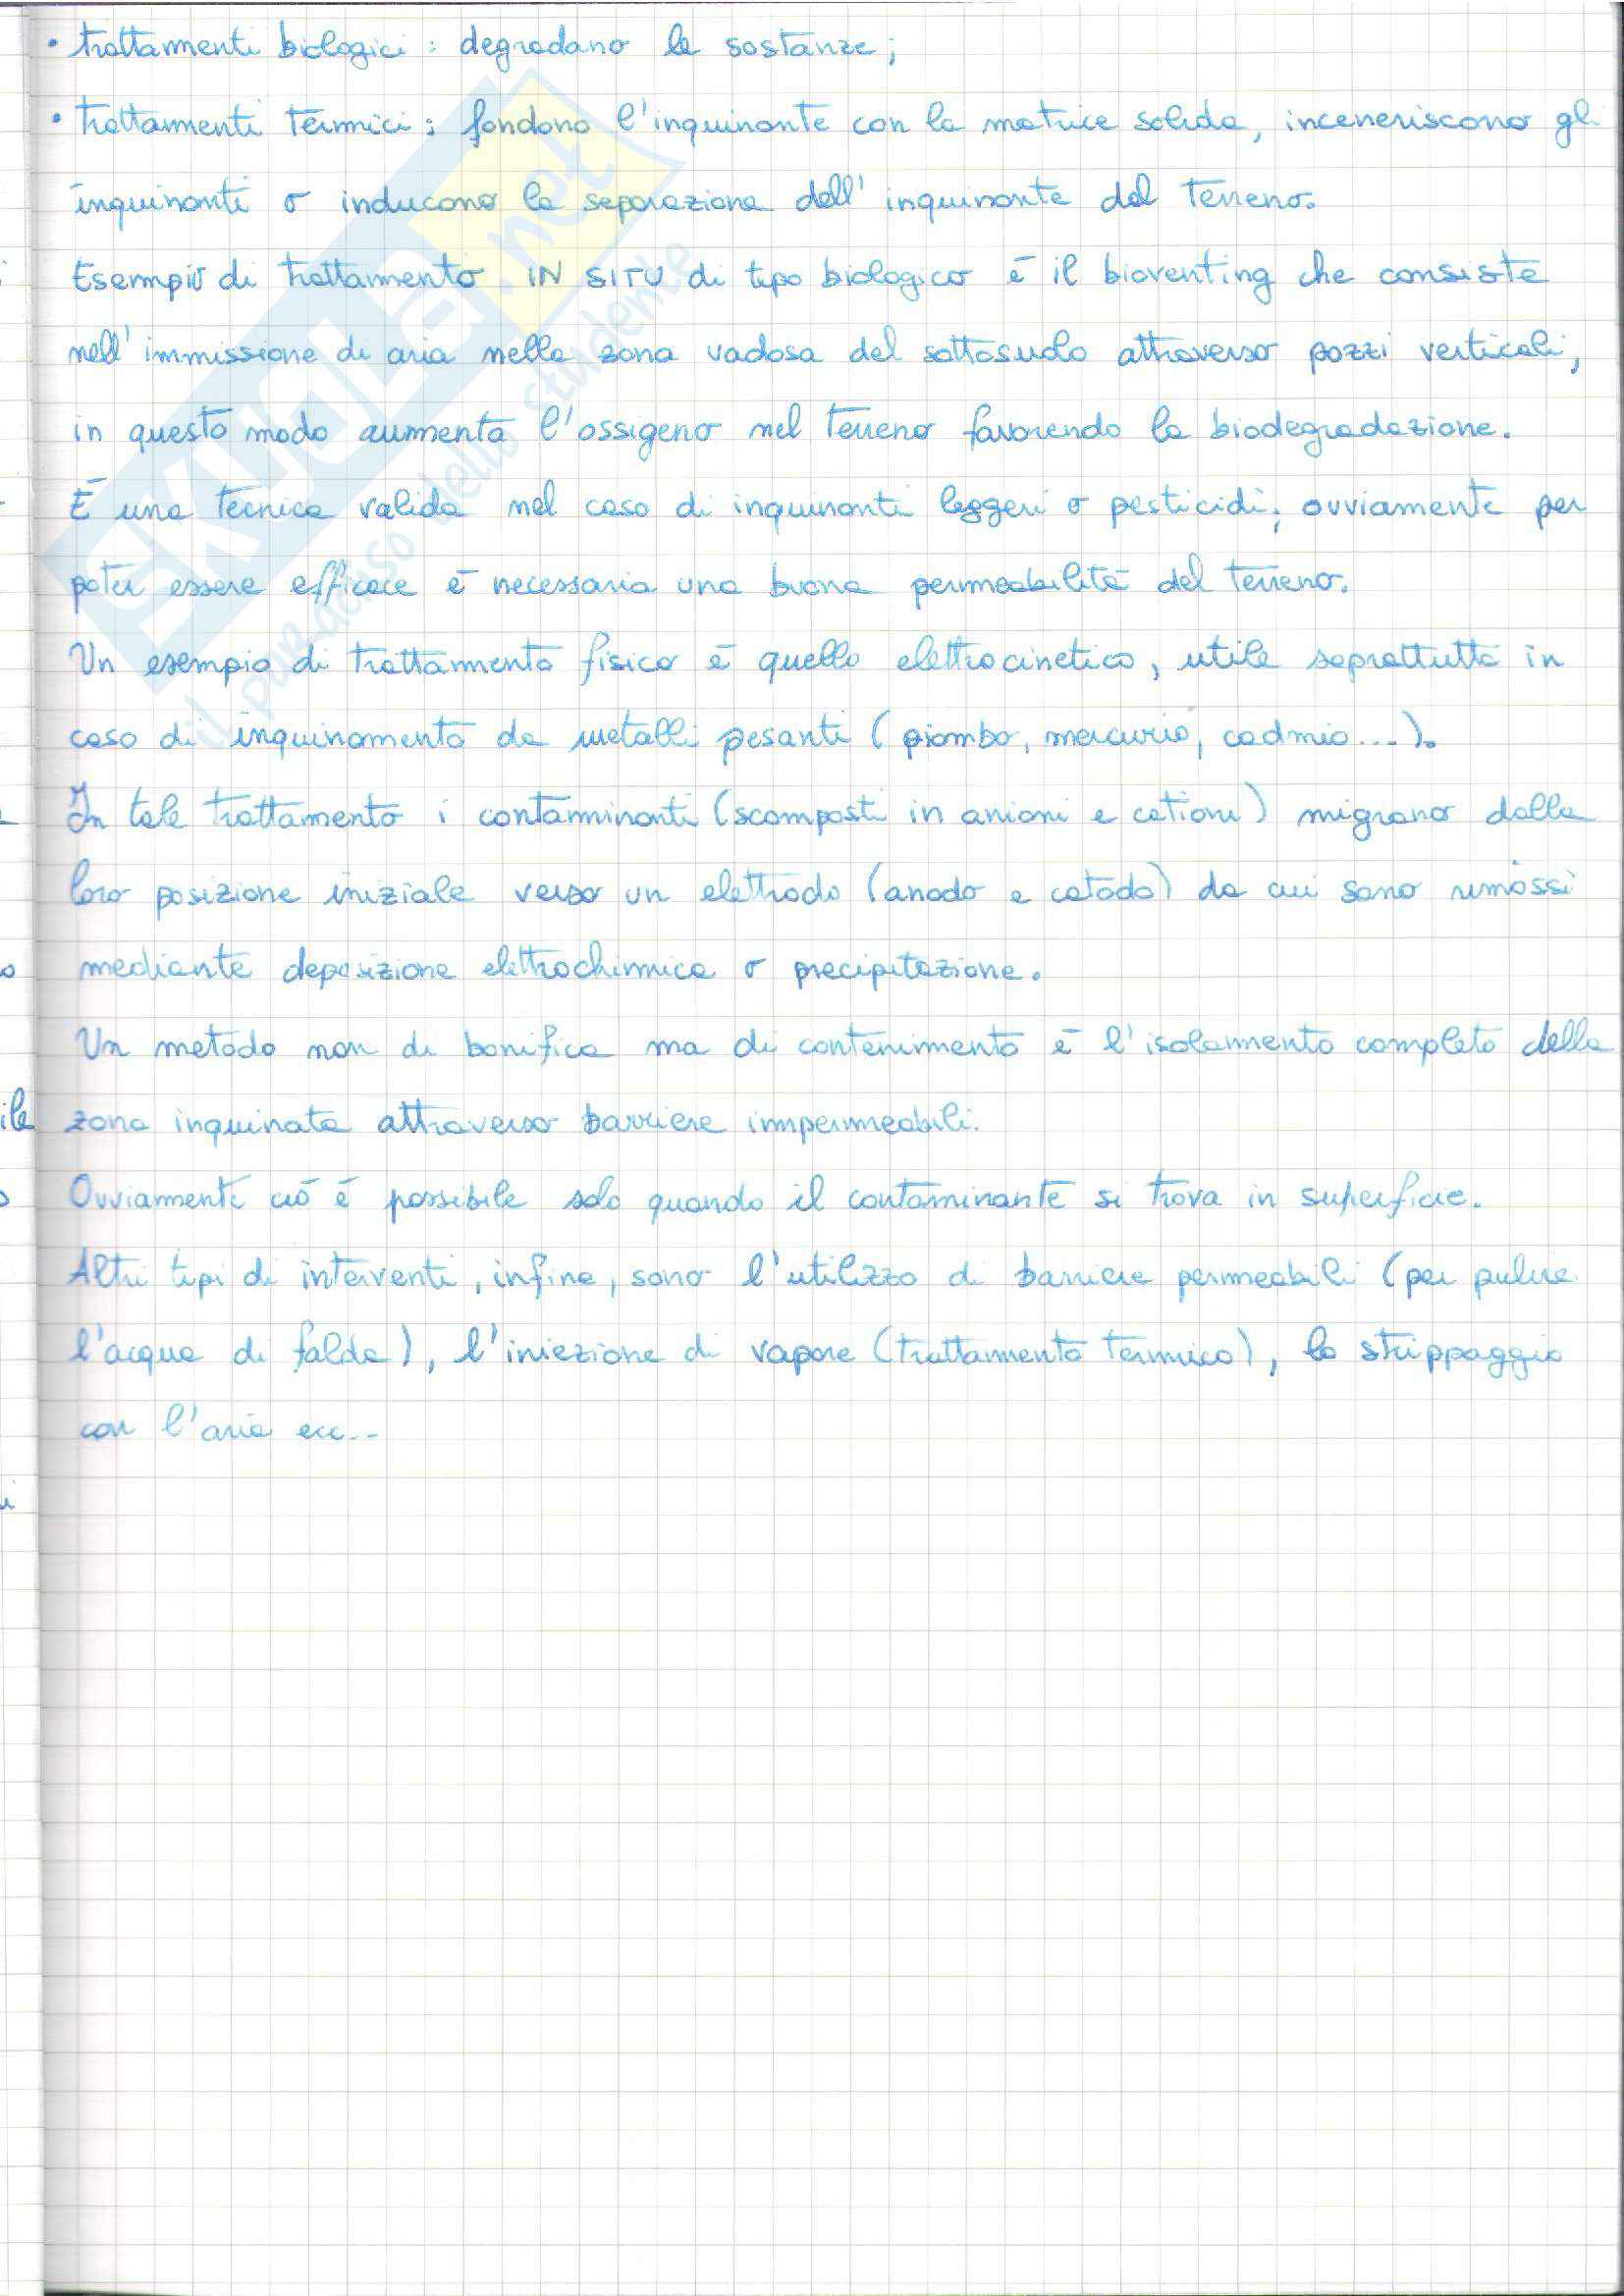 • trattamenti biologici : degradano le sostanze;
• Trattamenti termici : fondono l'inquinante con la matrice solida, inceneriscono gli
inquinanti o inducono la separazione dell' inquinante dal terreno.
Esempio di trattamento IN SITU di tipo biologico è il bioventing che consiste
nell' immissione di aria nella zona vadosa del sottosuolo attraverso pozzi verticali,
in questo modo aumenta l'ossigeno nel terreno favorendo la biodegradazione.
È una tecnica valida nel caso di inquinanti leggeri o pesticidi; ovviamente per
poter essere efficace è necessaria una buona permeabilità del terreno.
Un esempio di trattamento fisico è quello elettrocinetico, utile soprattutto in
caso di inquinamento da metalli pesanti (piombo, mercurio, cadmio...).
In tale trattamento i contaminanti (scomposti in anioni e cationi) migrano dalla
loro posizione iniziale verso un elettrodo (anodo e catodo) da cui sono rimossi
mediante deposizione elettrochimica o precipitazione.
Un metodo non di bonifica ma di contenimento è l'isolamento completo della
zona inquinata attraverso barriere impermeabili.
Ovviamente ciò è possibile solo quando il contaminante si trova in superficie.
Altri tipi di interventi, infine, sono l'utilizzo di barriere permeabili (per pulire
l'acqua di falda), l'iniezione di vapore (trattamento termico), lo strippaggio
con l'aria ecc...
SKUOLA.net
il paradiso dello studente